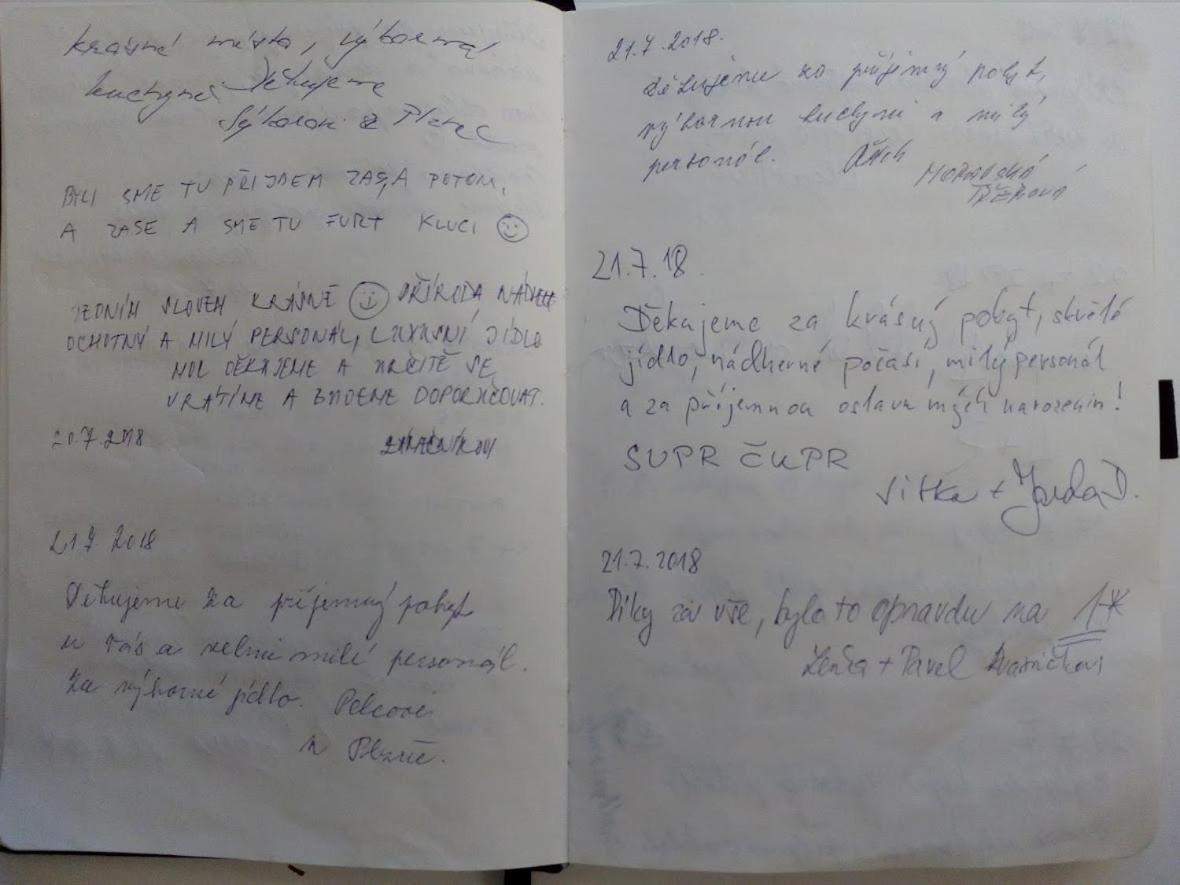 krásné místo, výborná
kuchyně. Děkujeme
BYLI SME TU PŘIJDEM ZAS, A POTOM,
A ZASE A SME TU FURT KLUCI
JEDNÍM SLOVEM KRÁSNÉ PŘÍRODA
OCHOTNÝ A MILÝ PERSONÁL, LUXUSNÍ JÍDLO
MOC DĚKUJEME A URČITĚ SE
VRÁTÍME A BUDEME DOPORUČOVAT.
20.7.2018
21 7 2018
Děkujeme za příjemný pobyt
u Vás a velmi milé personál.
Za výborné jídlo. Pelcovi
z Plzně.
21.7.2018.
Děkujeme za příjemný pobyt,
výbornou kuchyni a milý
personál.
MORAVSKÁ
TŘEBOVÁ
21.7.18.
Děkujeme za krásný pobyt, skvělé
jídlo, nádherné počasí, milý personál
a za příjemnou oslavu mých narozenin!
SUPR ČUPR
Jitka + Jarda D.
21.7.2018
Díky za vše, bylo to opravdu na 1*
Lenka + Pavel